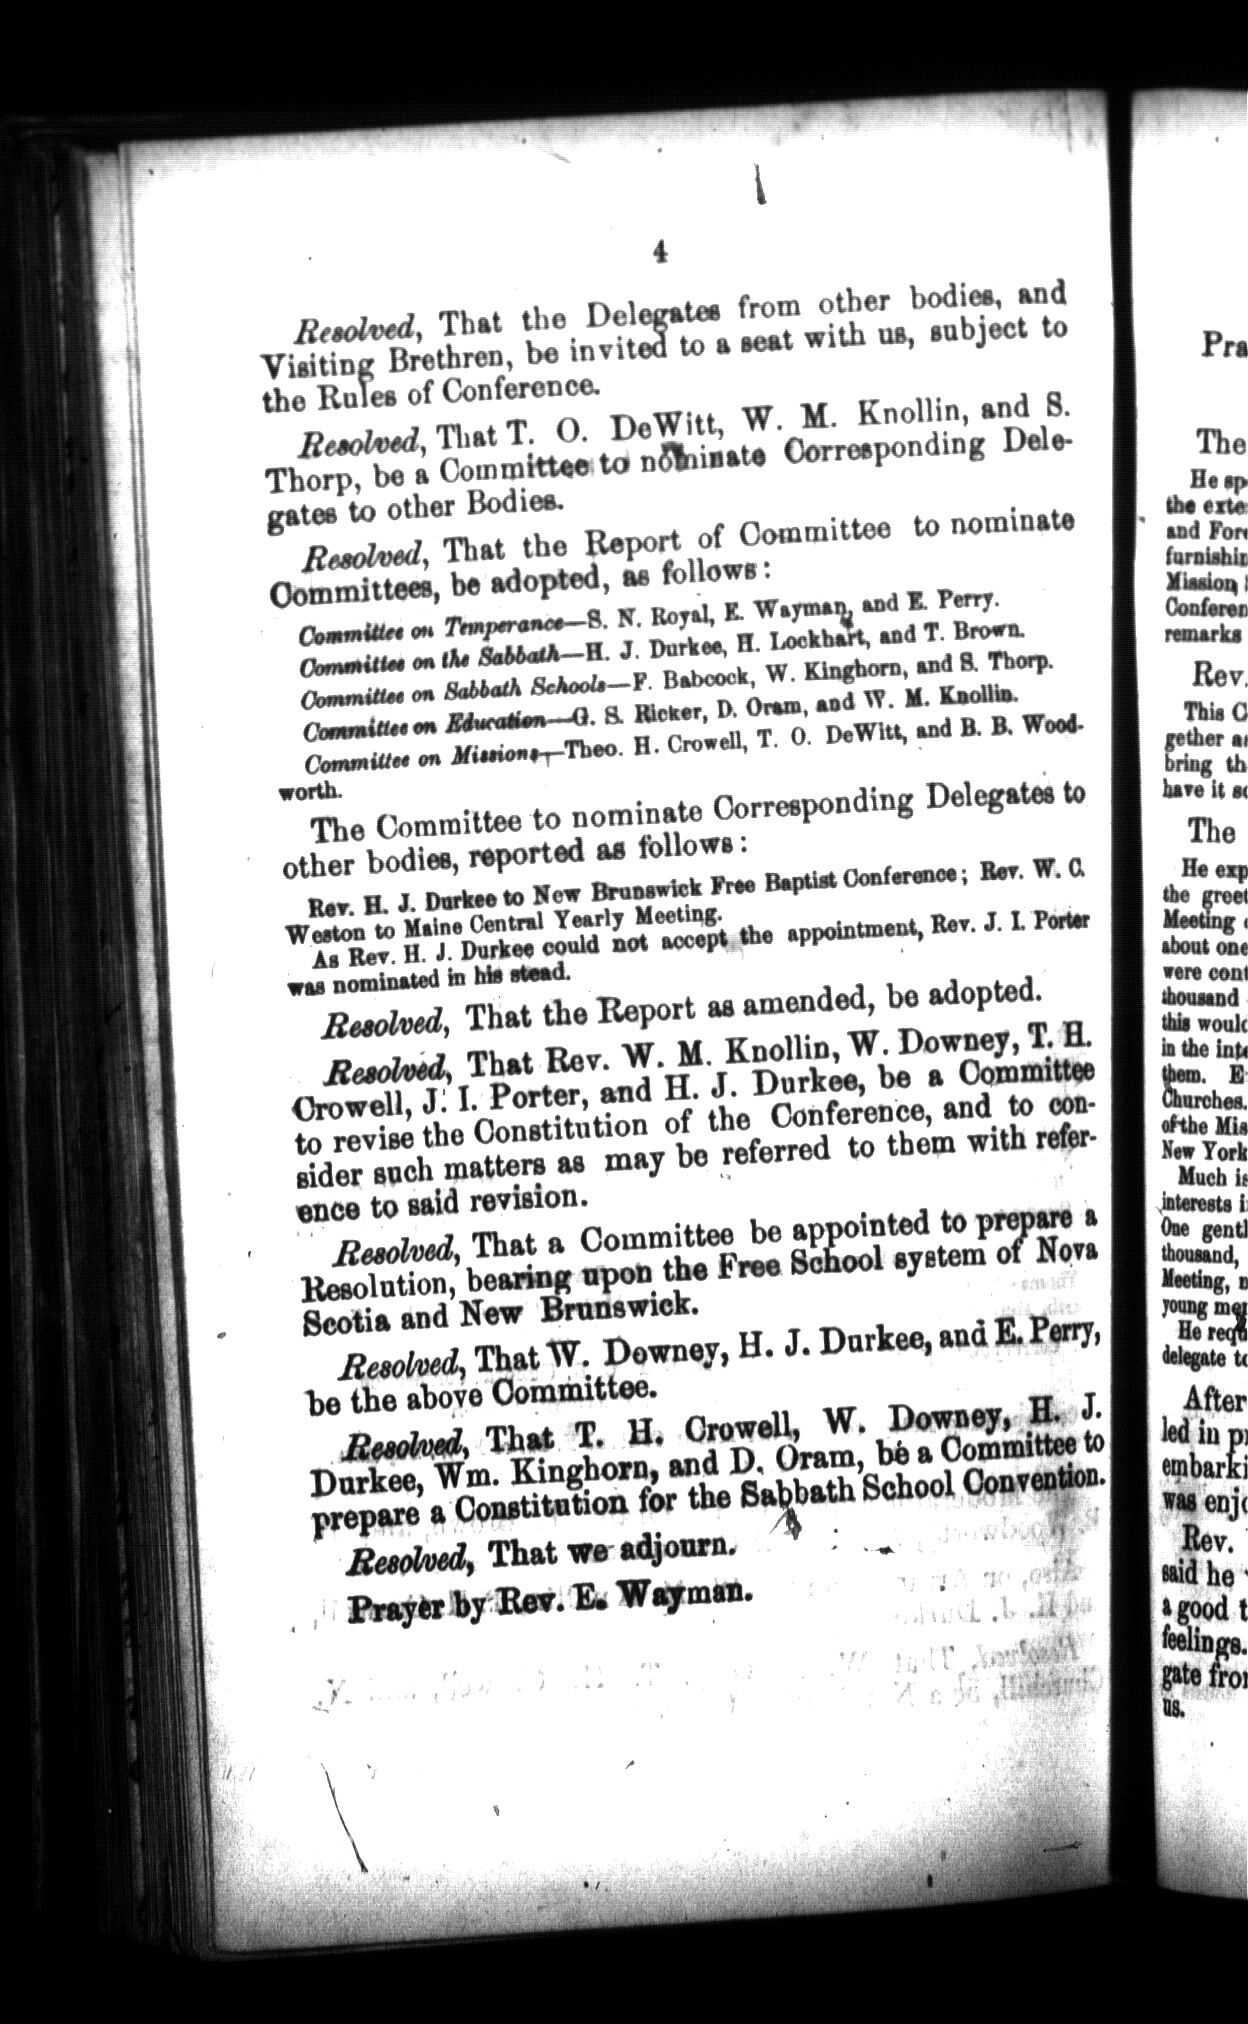 4
Resolved, That the Delegates from other bodies, and
Visiting Brethren, be invited to a seat with us, subject to
the Rules of Conference.
Resolved, That T. O. DeWitt, W. M. Knollin, and S.
Thorp, be a Committee to nominate Corresponding Dele-
gates to other Bodies.
Resolved, That the Report of Committee to nominate
Committees, be adopted, as follows:
Committee on Temperance—S. N. Royal, E. Wayman, and E. Perry.
Committee on the Sabbath—H. J. Durkee, H. Lockhart, and T. Brown.
Committee on Sabbath Schools—F. Babcock, W. Kinghorn, and S. Thorp.
Committee on Education—G. S. Ricker, D. Oram, and W. M. Knollin.
Committee on Missions—Theo. H. Crowell, T. O. DeWitt, and B. B. Wood-
worth.
The Committee to nominate Corresponding Delegates to
other bodies, reported as follows:
Rev. H. J. Durkee to New Brunswick Free Baptist Conference; Rev. W. C.
Weston to Maine Central Yearly Meeting.
As Rev. H. J. Durkee could not accept the appointment, Rev. J. I. Porter
was nominated in his stead.
Resolved, That the Report as amended, be adopted.
Resolved, That Rev. W. M. Knollin, W. Downey, T. H.
Crowell, J. I. Porter, and H. J. Durkee, be a Committee
to revise the Constitution of the Conference, and to con-
sider such matters as may be referred to them with refer-
ence to said revision.
Resolved, That a Committee be appointed to prepare a
Resolution, bearing upon the Free School system of Nova
Scotia and New Brunswick.
Resolved, That W. Downey, H. J. Durkee, and E. Perry,
be the above Committee.
Resolved, That T. H. Crowell, W. Downey, H. J.
Durkee, Wm. Kinghorn, and D. Oram, be a Committee to
prepare a Constitution for the Sabbath School Convention.
Resolved, That we adjourn.
Prayer by Rev. E. Wayman.
Pra
The
He sp
the exte
and Fore
furnishin
Mission
Conferen
remarks
Rev.
This C
gether a
bring th
have it s
The
He exp
the greet
Meeting
about one
were cont
thousand
this would
in the inte
them. E
Churches.
of the Mis
New York
Much is
interests i
One gentl
thousand,
Meeting,
young men
He requ
delegate to
After
led in pr
embarki
was enjo
Rev.
said he
a good t
feelings.
gate from
us.